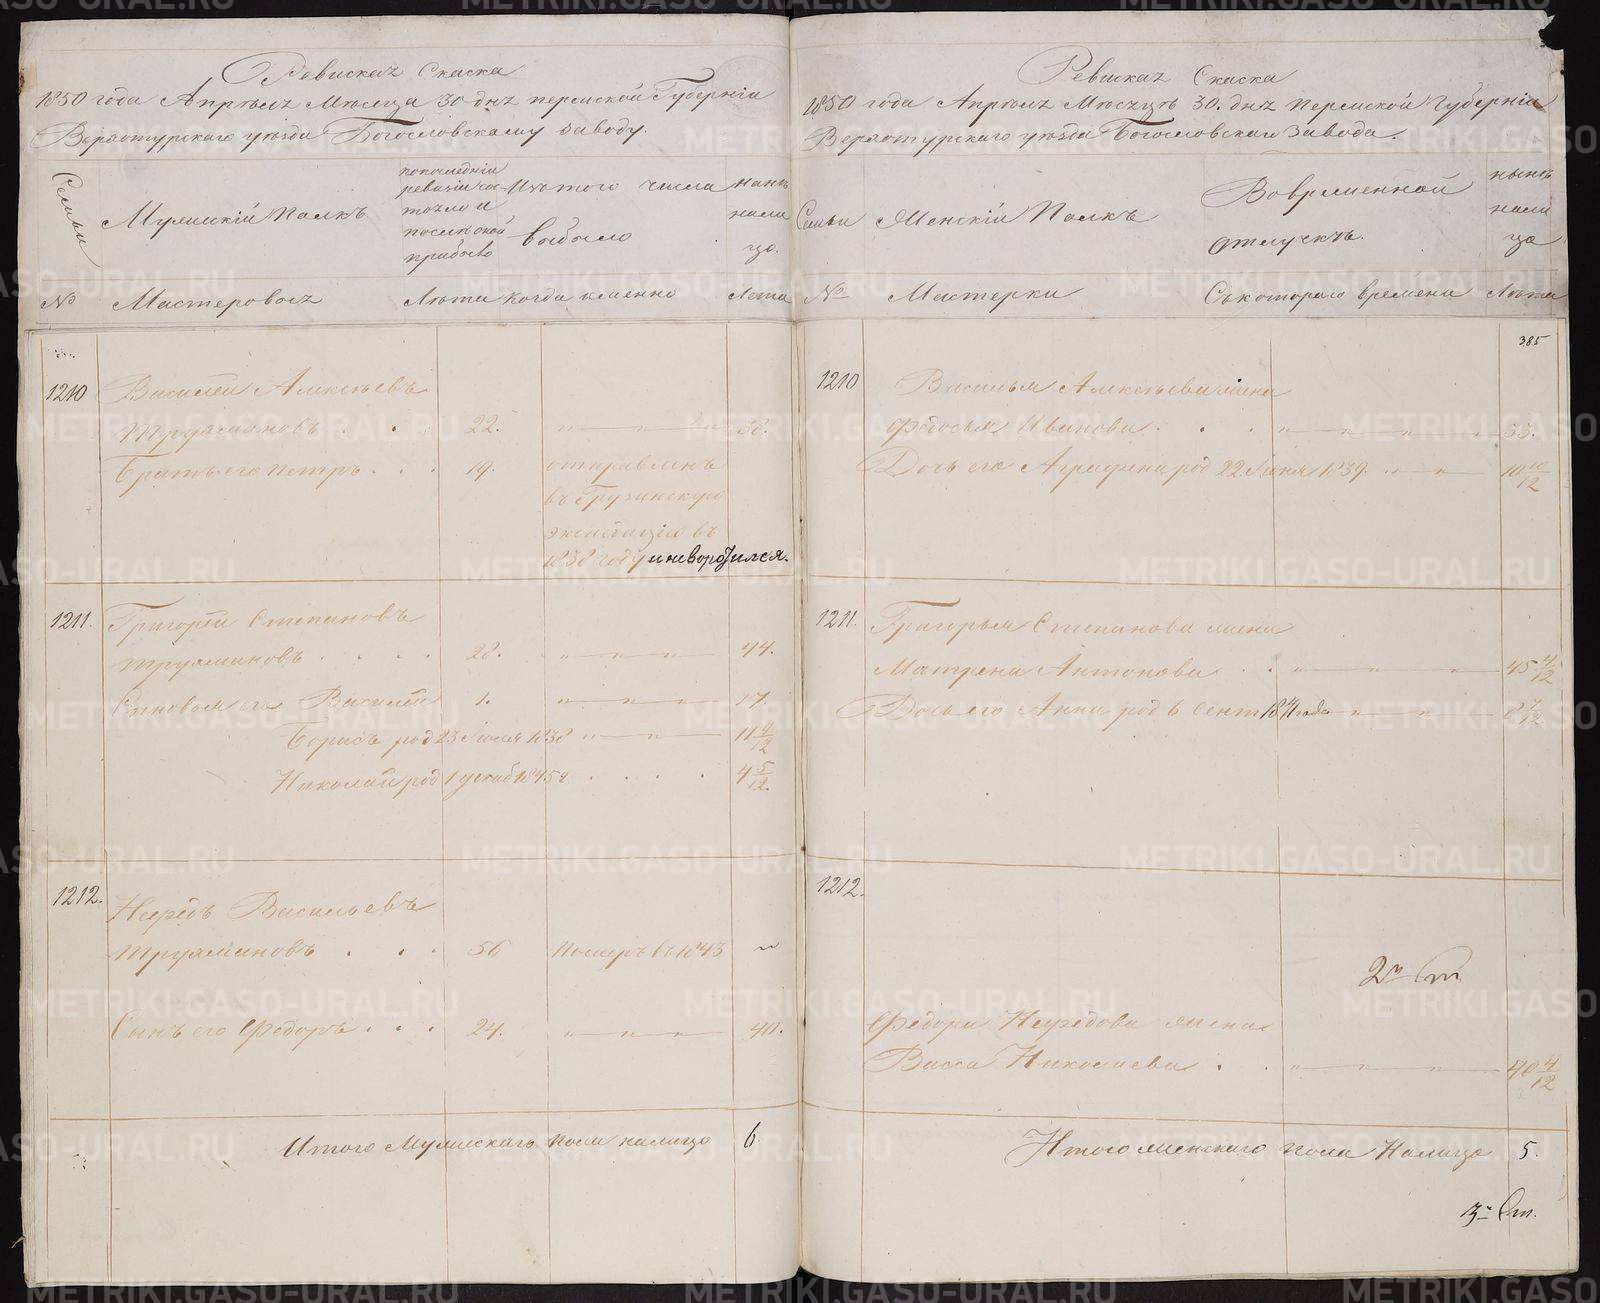 Ревиская Скаска
1850 года Апреля Месяца 30 дня пермской Губерніи
Верхотурскаго уезда Богословскому заводу.
Семьи
Мужискій Полкъ
попоследніи
ревизіи сос-
тояло и
после оной
прибыло
Изтого числа
выбыло
нане
нали
цо.
№ Мастеровыя Лета когда именно Лета
1210 Василей Алексеевъ
Трухмановъ . . . 22. " " " 38.
Братъ его Петръ . . . 19. отправленъ
въ Грузинскую
экспедицію въ
1838 году и неворотился.
1211. Григорей Степановъ
Трухмановъ . . . . 28. " " " 44.
Сыновья его Василей 1. " " " 17.
Борисъ род 23 Іюля 1838 " " 11 9/12
Николай род 1 декаб 1845 г . . . . 4 5/12.
1212. Нефедъ Васильевъ
Трухмановъ . . . 56 Померъ въ 1843 "
Сынъ его Федоръ . . . 24. " " " 40.
Итого Мужескаго пола налицо 6.
Ревиская Скаска
1850 года Апреля Месяцъ 30. дня Пермской Губерніи
Верхотурскаго уезда Богословскаго Завода.
Семьи Женскій Полкъ
Вовременной
отлучке.
ныне
нали
цо
№ Мастерки Съкотораго времени Лета
385
1210 Василья Алексеева жена
Федосья Иванова . . . " " " " 33.
Дочь его Аграфена род 22 Іюня 1839. " " 10 10/12
1211. Григорья Степанова жена
Матрена Антонова . . " " " 45 4/12
Дочь его Анна род в сент 1841 года " " 8 7/12
1212.
2я Ст
Федора Нефедова жена
Васса Николаева . . " " " 40 4/12
Итого женскаго пола Налицо 5.
3я Ст.
METRIKI.GASO-URAL.RU